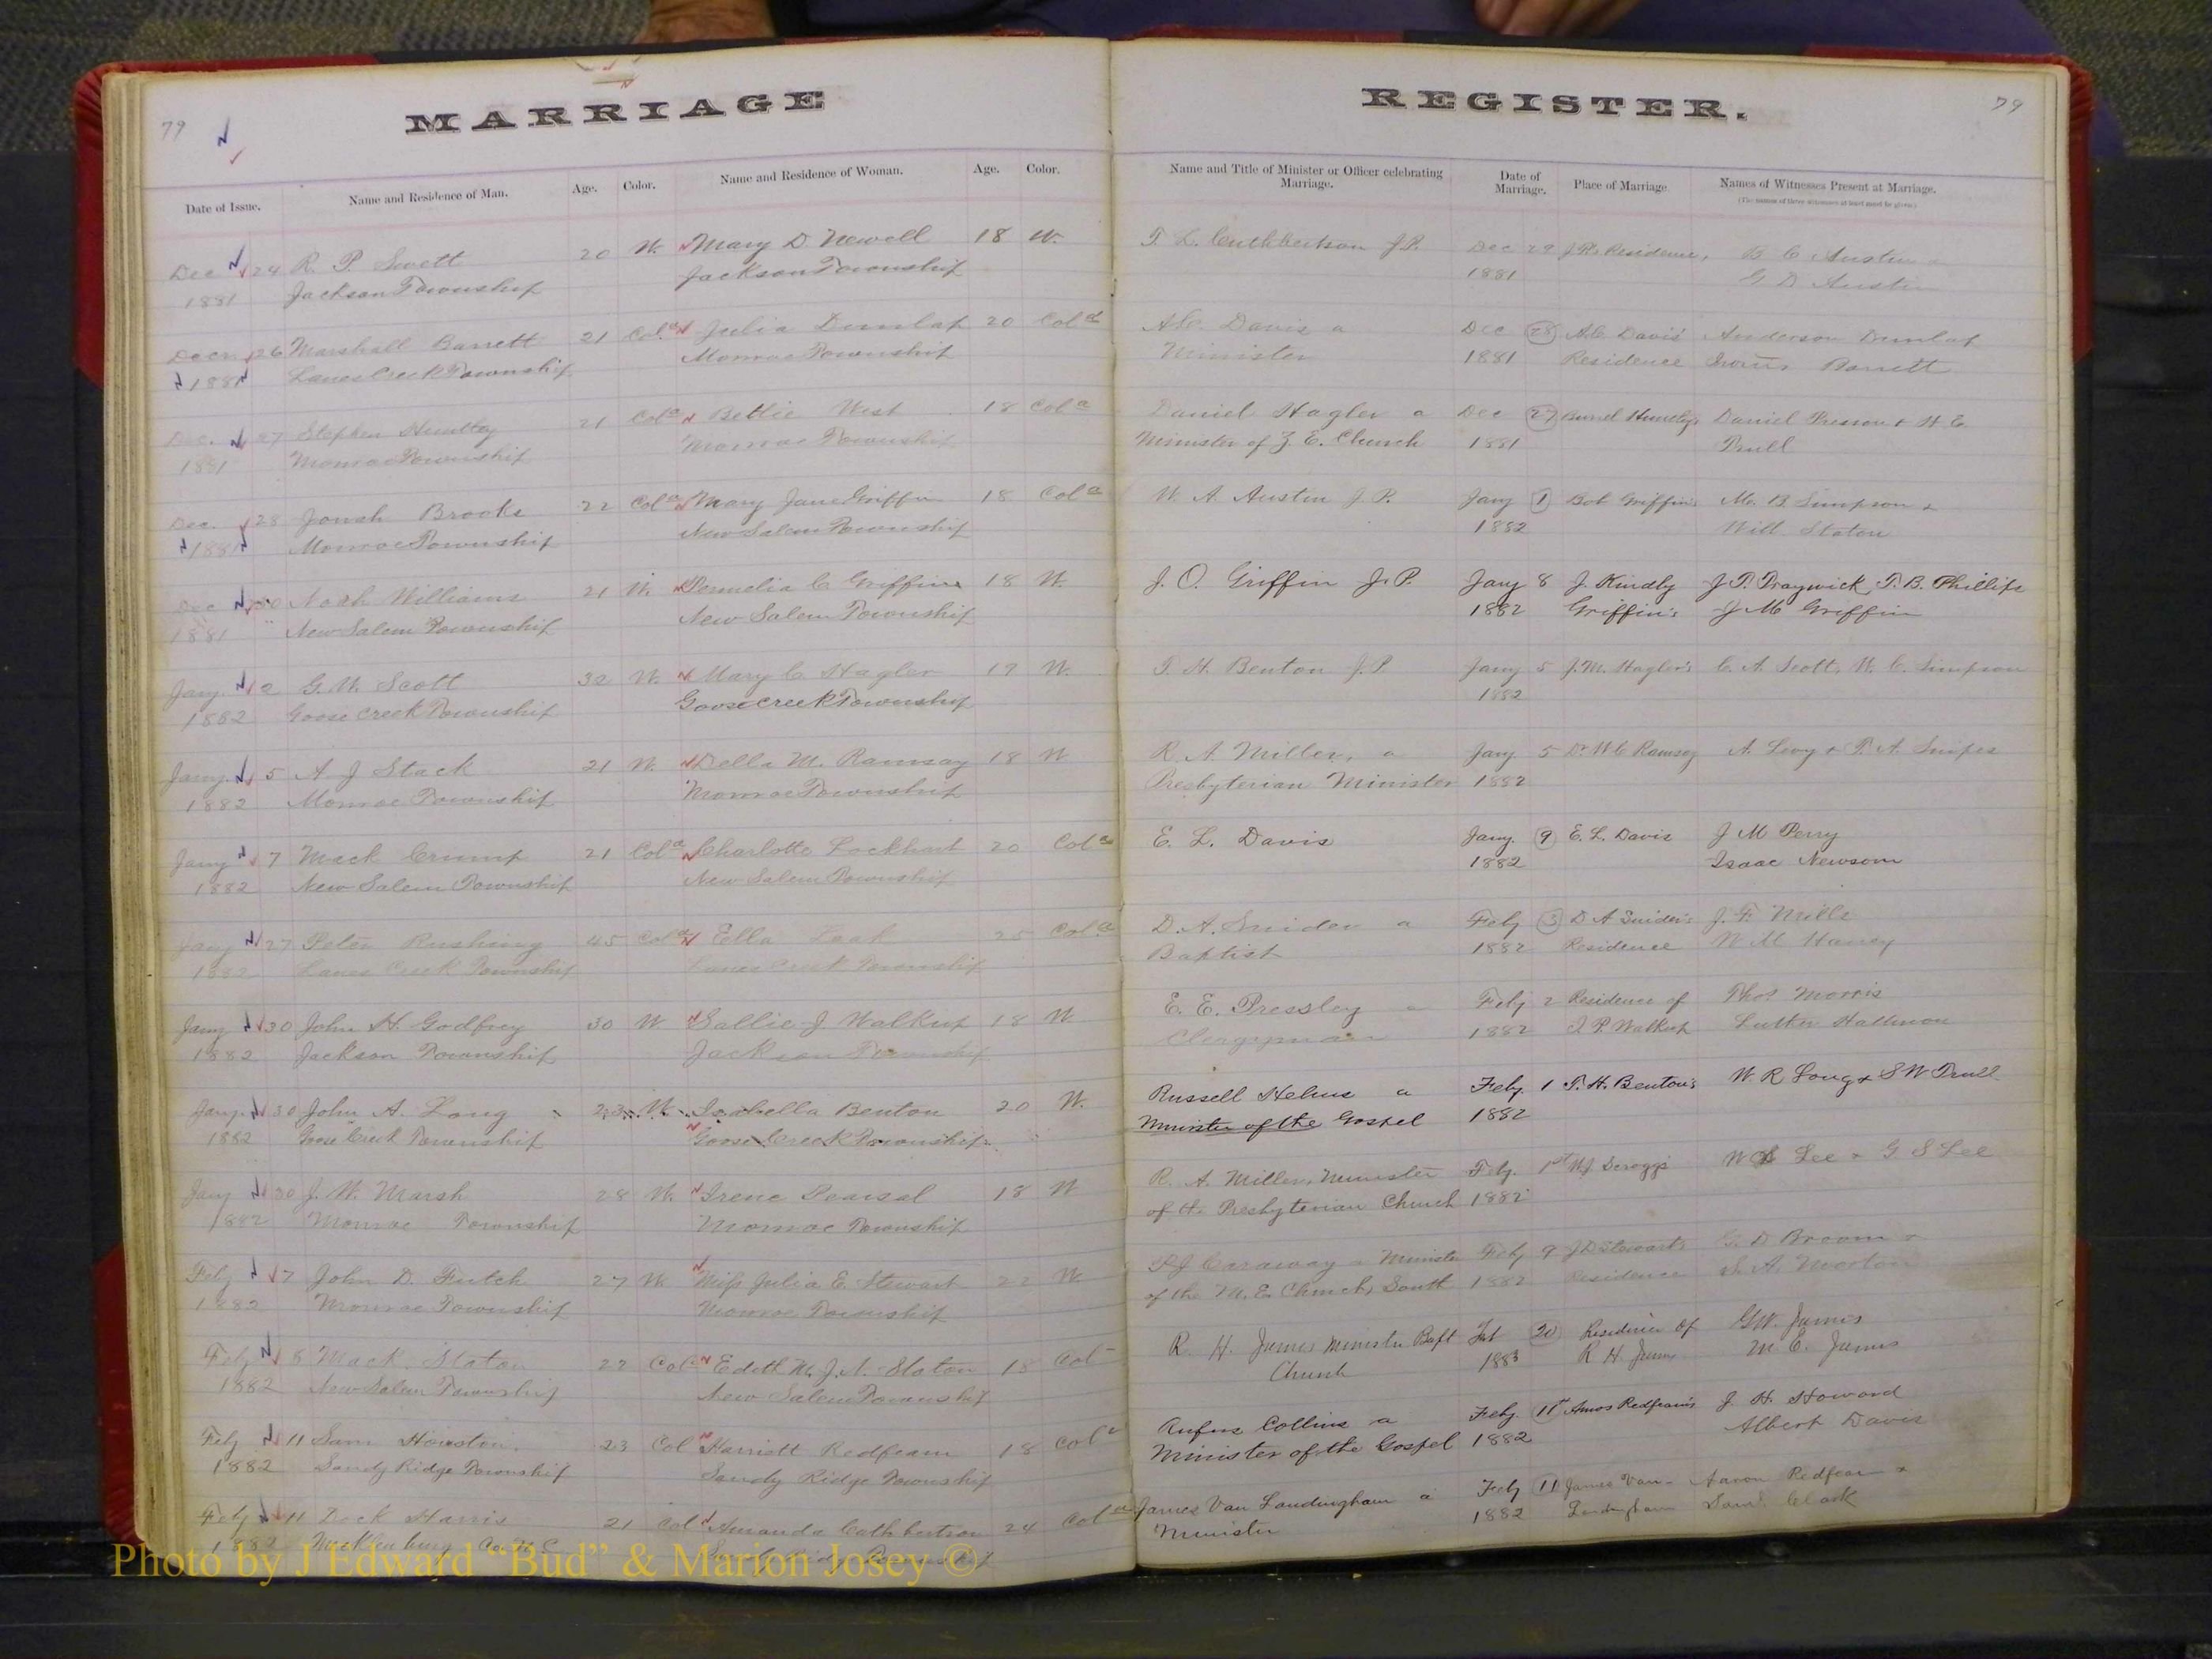 79
MARRIAGE
Date of Issue. Name and Residence of Man. Age. Color. Name and Residence of Woman. Age. Color.
Dec 24 R. P. Swett 20 W. Mary D. Newell 18 W.
1881 Jackson Township Jackson Township
Decr. 26 Marshall Barrett 21 Cold Julia Dunlap 20 Cold
1881 Lanes Creek Township Monroe Township
Dec. 27 Stephen Huntley 21 Cold Bettie West 18 Cold
1881 Monroe Township Monroe Township
Dec. 28 Jonah Brooks 22 Cold Mary Jane Griffin 18 Cold
1881 Monroe Township New Salem Township
Dec 30 Noah Williams 21 W. Permelia C. Griffin 18 W.
1881 " New Salem Township New Salem Township
Jany. 2 G. W. Scott 32 W. Mary C. Hagler 19 W.
1882 Goose Creek Township Goose Creek Township
Jany. 5 A. J Stack 21 W. Della M. Ramsay 18 W
1882 Monroe Township Monroe Township
Jany 7 Mack Crump 21 Cold Charlotte Lockhart 20 Cold
1882 New Salem Township New Salem Township
Jany 27 Peter Rushing 45 Cold Ella 25 Cold
1882 Lanes Creek Township Lanes Creek Township
Jany 30 John H. Godfrey 30 W Sallie J Walkup 18 W
1882 Jackson Township Jackson Township
Jany. 30 John A. Long 23 W. Isabella Benton 20 W.
1882 Goose Creek Township Goose Creek Township
Jany 30 J. W. Marsh 28 W. Irene 18 W
1882 Monroe Township Monroe Township
Feby 7 John D. Futch 27 W. Miss Julia E. Stewart 22 W.
1882 Monroe Township Monroe Township
Feby 8 Mack Staton 22 Col Edith M. J. A. Staton 18 Col
1882 New Salem Township New Salem Township
Feby 11 Sam Houston. 23 Col Harriett Redfearn 18 Cold
1882 Sandy Ridge Township Sandy Ridge Township
Feby 11 Dock Harris 21 Col Amanda Cuthbertson 24 Cold
1882 Mecklenburg Co. N. C. Sandy Ridge Township
REGISTER.
79
Name and Title of Minister or Officer celebrating Marriage. Date of Marriage. Place of Marriage. Names of Witnesses Present at Marriage.
(The names of three witnesses at least must be given.)
T. L. Cuthbertson J.P. Dec 29 J.P.s Residence, B C Austin
1881 G D Austin
A.C. Davis a Dec 28 A.C. Davis' Anderson Dunlap
Minister 1881 Residence Barrett
Daniel Hagler a Dec 27 Burrel Huntley's Daniel Presson & H E
Minister of Z. E. Church 1881 Trull
W. A. Austin J. P. Jany 1 Bob Griffins M. B. Simpson &
1882 Will Staton
J. O. Griffin J. P. Jany 8 J. Kindly J. T. Traywick, T. B. Phillips
1882 Griffin's J M Griffin
T. H. Benton J.P Jany 5 J.M. Hagler's C. A. Scott, W. C. Simpson
1882
R. A. Miller, a Jany 5 Dr W C Ramsey A. Levy & T. A. Snipes
Presbyterian Minister 1882
E. L. Davis Jany. 9 E. L. Davis J M Perry
1882 Isaac Newsom
D. A. Snider a Feby 3 D A Snider's J. F. Mills
Baptist 1882 Residence W M Haney
E. E. Pressley a Feby 2 Residence of Thos Morris
Clergyman 1882 Walkup Luther
Russell Helms a Feby. 1 T. H. Benton's W R Long & S W Trull
Minister of the Gospel 1882
R. A. Miller, Minister Feby. 1st W J Scroggs W Lee & G S Lee
of the Presbyterian Church 1882
Caraway a Minister Feby 9 J D Stewart's G. D Broom &
of the M. E. Church, South 1882 Residence A. Norton
R. H. James Minister Bapt Feb 20 Residence of G W. James
Church 1883 R H James M. E. James
Rufus Collins a Feby. 11 Amos Redfearn's J. H. Howard
Minister of the Gospel 1882 Albert Davis
James Van Landingham a Feby 11 James Van- Aaron Redfearn &
Minister 1882 Landingham Saml Clark
Photo by J Edward “Bud” & Marion Josey ©